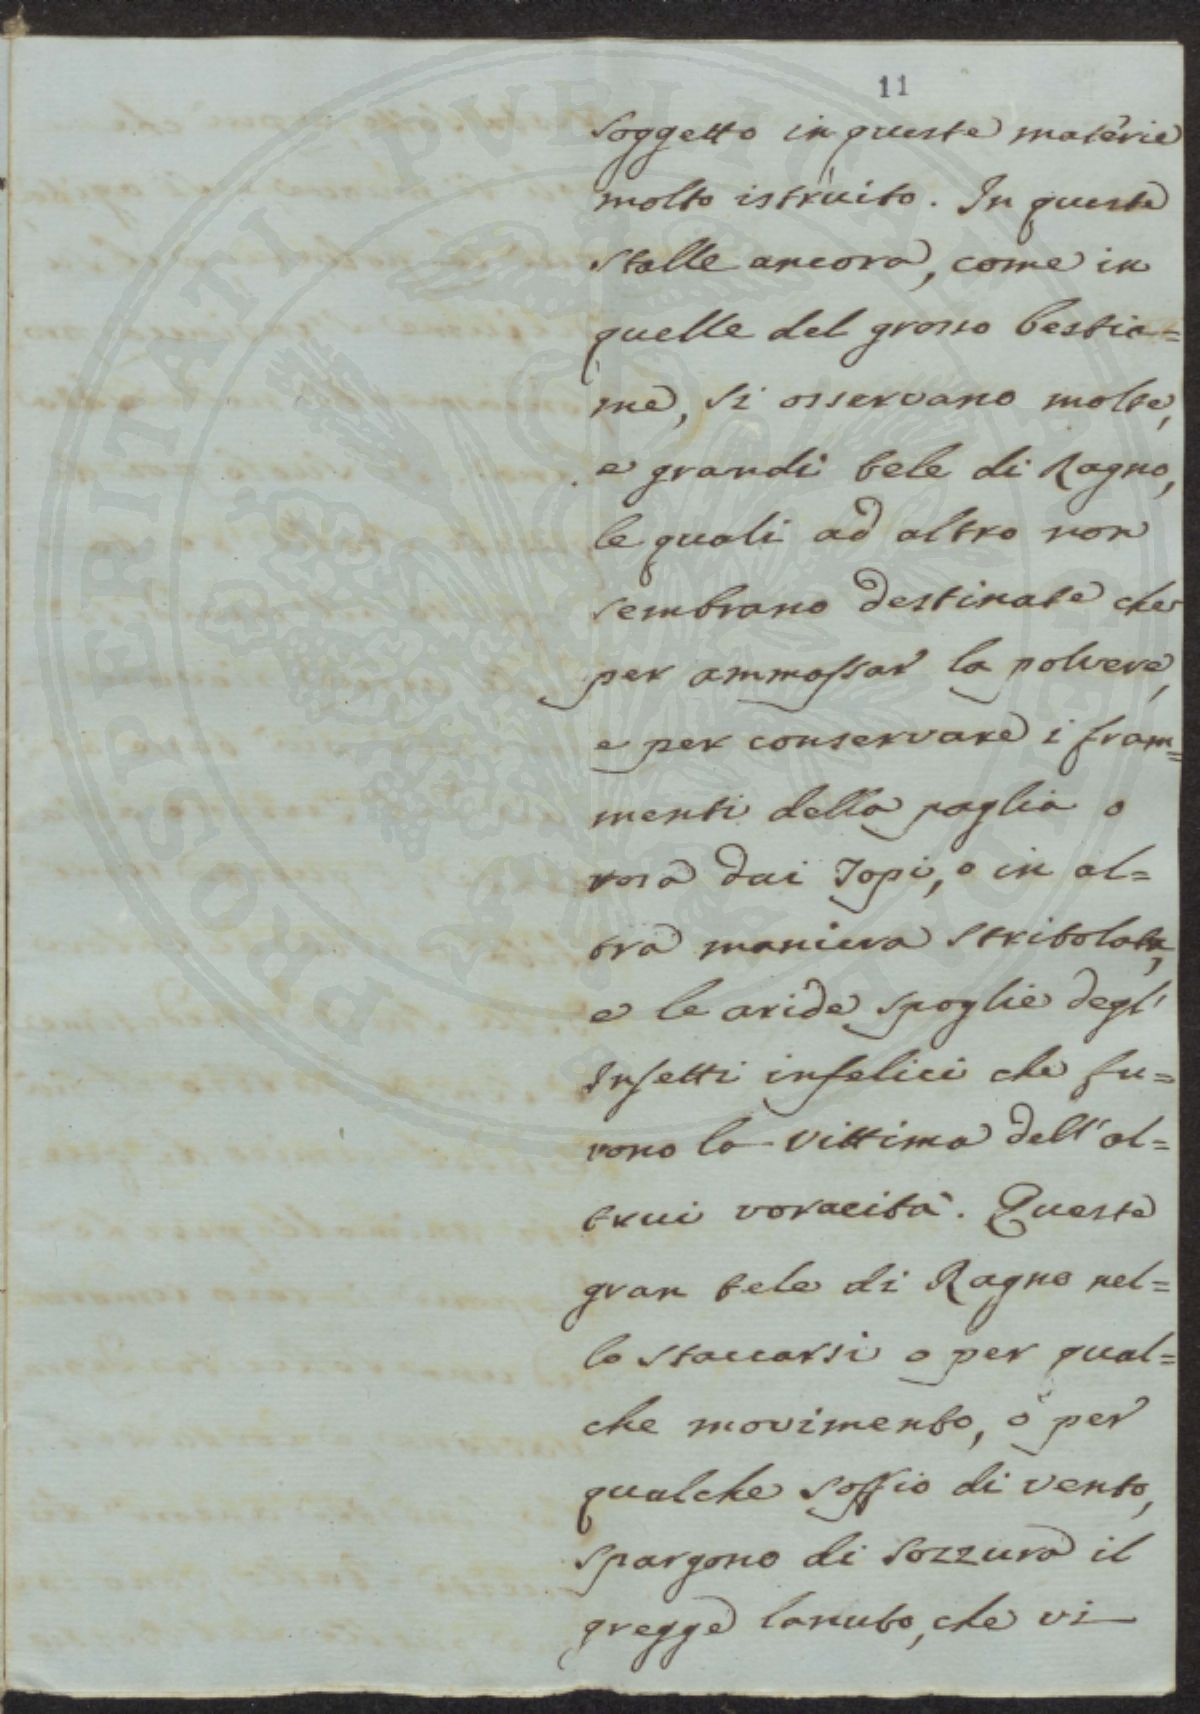 11
soggetto in queste materie
molto istruito. In queste
stalle ancora, come in
quelle del grosso bestia=
me, si osservano molte,
e grandi tele di Ragno,
le quali ad altro non
sembrano destinate che
per ammassar la polvere,
e per conservare i fram=
menti della paglia o
rosa dai Topi, o in al=
tra maniera stritolata,
e le aride spoglie degl'
Insetti infelici che fu=
rono la vittima dell'al=
trui voracità. Queste
gran tele di Ragno nel=
lo staccarsi o per qual=
che movimento, o per
qualche soffio di vento,
spargono di sozzura il
gregge lanuto, che vi
PROSPERITATI PVBLICAE